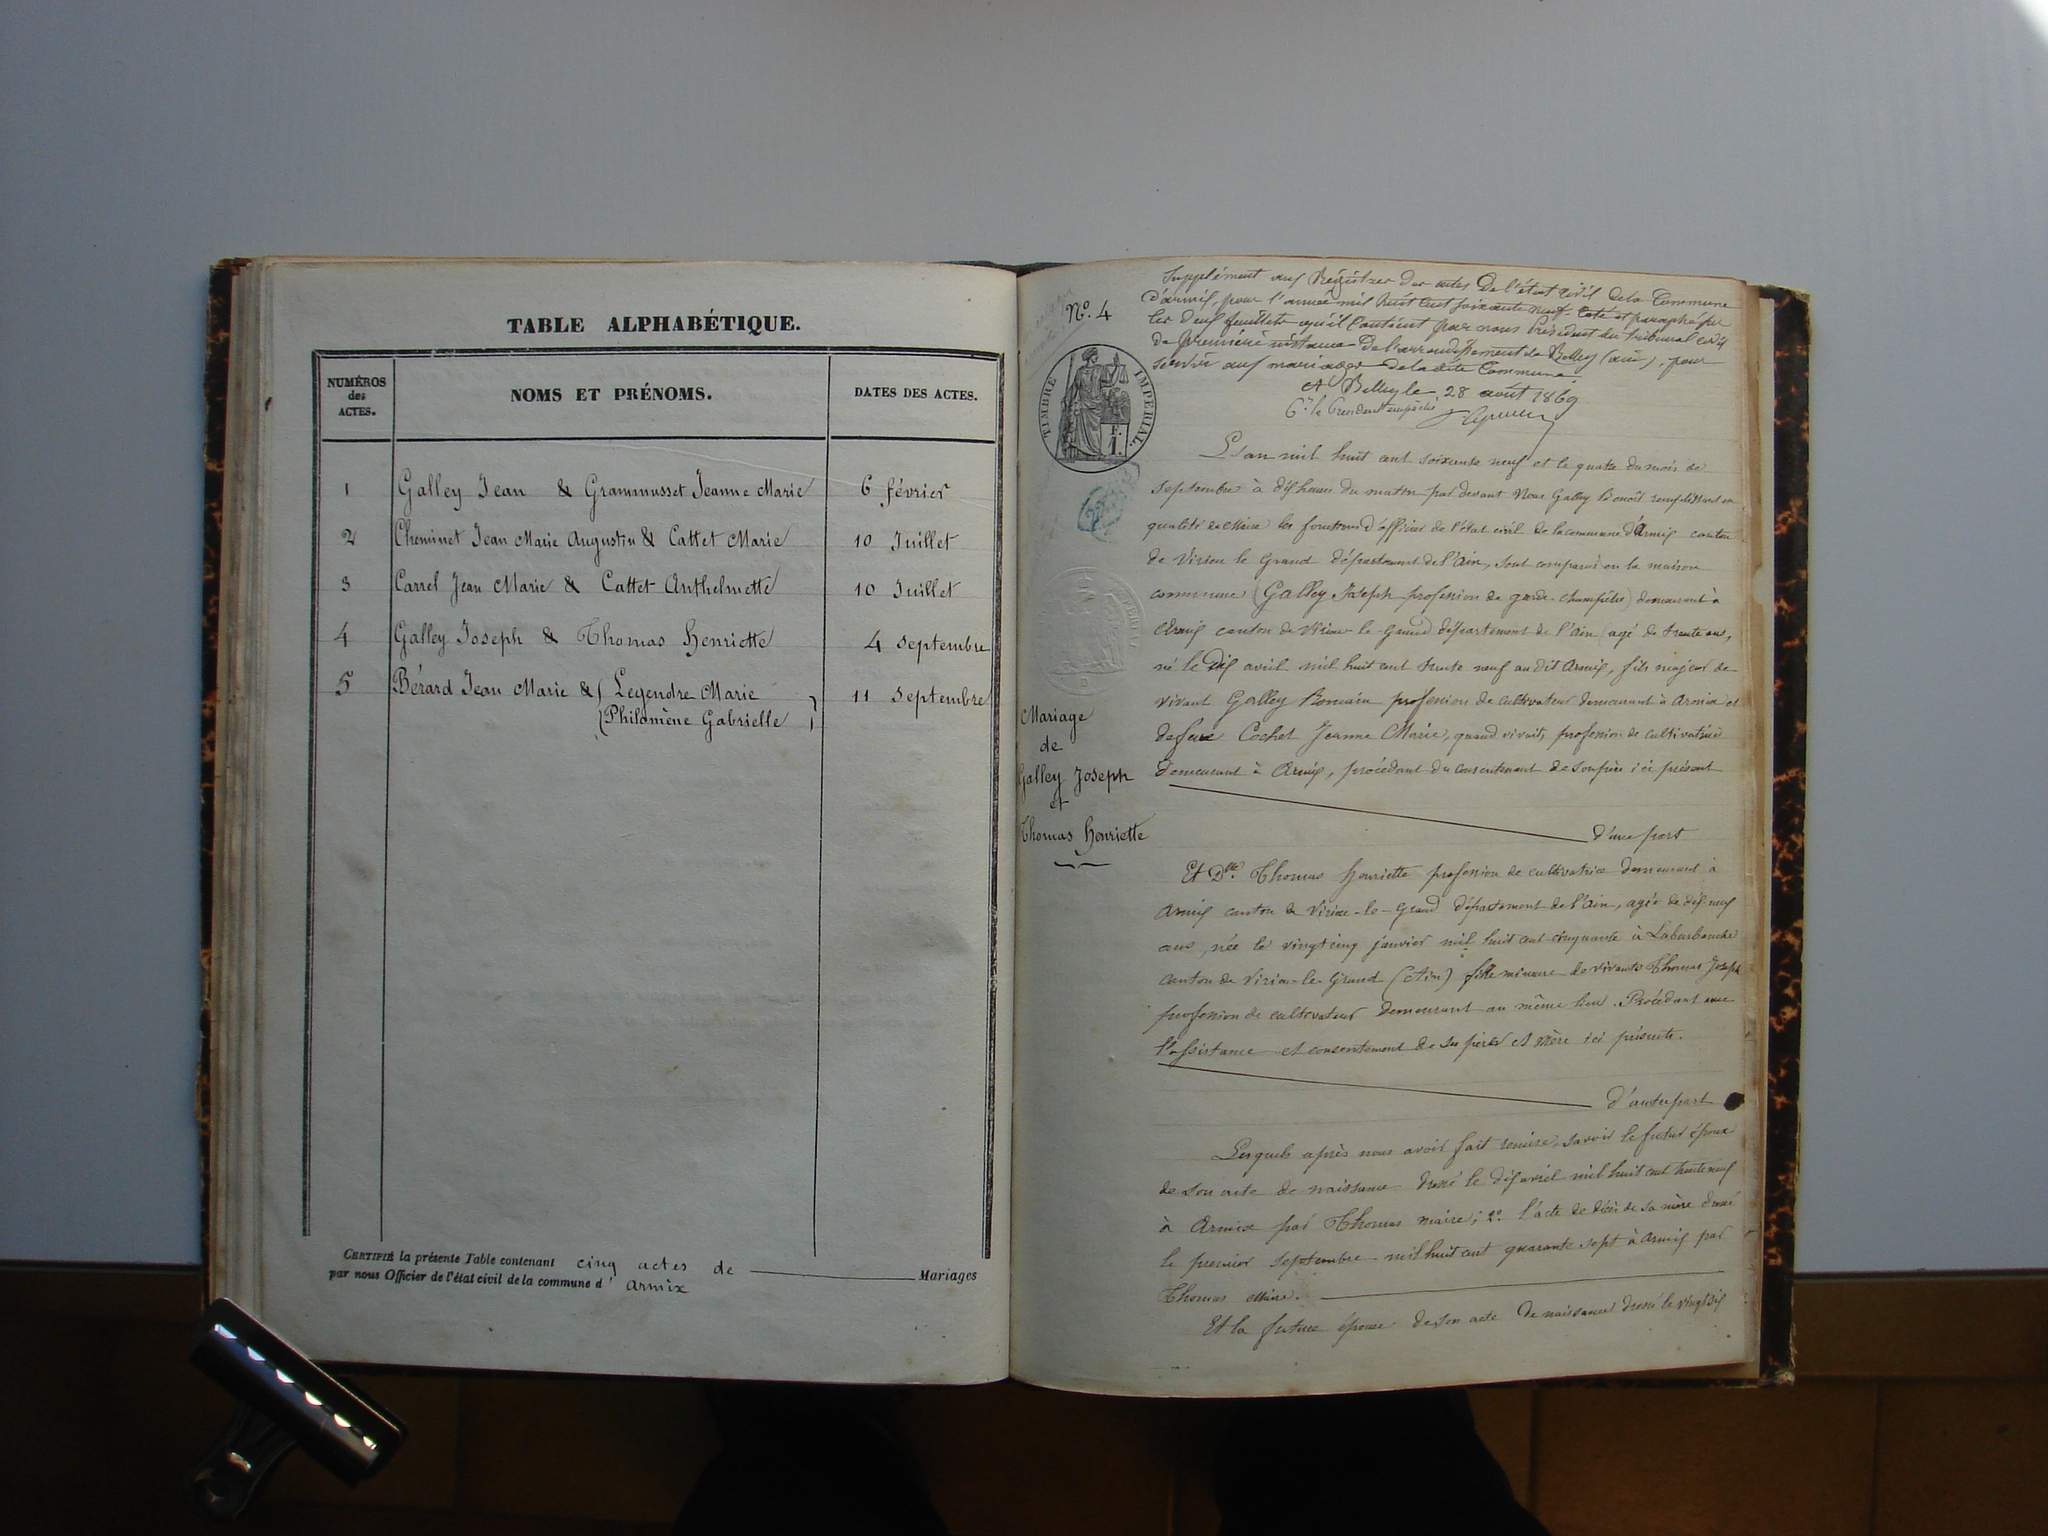 TABLE ALPHABÉTIQUE.
NUMÉROS
des
ACTES.
NOMS ET PRÉNOMS.
DATES DES ACTES.
1 Galley Jean & Grammusset Jeanne Marie 6 février
2 Cheminet Jean Marie Augustin & Cattet Marie 10 Juillet
3 Carrel Jean Marie & Cattet Anthelmette 10 Juillet
4 Galley Joseph & Thomas Henriette 4 septembre
5 Bérard Jean Marie & Legendre Marie 11 septembre
Philomène Gabrielle
CERTIFIÉ la présente Table contenant cinq actes de Mariages
par nous Officier de l'état civil de la commune d' Armix
N° 4
Supplément aux Régistres des actes de l'état civil de la Commune
d'armix, pour l'année mil huit cent soixante neuf. Coté et paraphé par
les deux feuillets qu'il contient par nous Président du tribunal civil
de première instance de l'arrondissement de Belley (ain), pour
servir aux mariages de la dite Commune.
A Belley le 28 août 1869
Pr. le Président empêché
TIMBRE IMPÉRIAL.
F.
1.
L'an mil huit cent soixante neuf et le quatre du mois de
septembre à dix heures du matin par devant Nous Galley Benoît remplissant en
qualité de Maire les fonctions d'officier de l'état civil de la commune d'Armix canton
de Virieu le Grand département de l'Ain, sont comparus en la maison
commune (Galley Joseph profession de garde-champêtre) demeurant à
Armix canton de Virieu-le-Grand département de l'Ain (agé de trente ans,
né le dix avril mil huit cent trente neuf au dit Armix, fils majeur de
vivant Galley Romain profession de cultivateur demeurant à Armix et
defunte Cochet Jeanne Marie, quand vivait, profession de cultivatrice
demeurant à Armix, procédant du consentement de son père ici présent
d'une part
Mariage
de
Galley Joseph
et
Thomas Henriette
Et Dlle Thomas Henriette profession de cultivatrice demeurant à
Armix canton de Virieu-le-Grand département de l'Ain, agée de dix neuf
ans, née le vingt cinq janvier mil huit cent cinquante à Laburbanche
canton de Virieu-le-Grand (Ain) fille mineure de vivants Thomas Joseph
profession de cultivateur demeurant au même lieu. Procédant avec
l'assistance et consentement de ses père et mère ici présente.
d'autre part
Lesquels après nous avoir fait remise, savoir le futur époux
de son acte de naissance dressé le dix avril mil huit cent trente neuf
à Armix par Thomas maire; 2° l'acte de décès de sa mère dressé
le premier septembre mil huit cent quarante sept à Armix par
Thomas Maire.
Et la future épouse de son acte de naissance dressé le vingt six